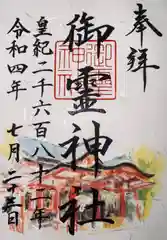 奉拝
御靈神社
皇紀二千六百八十二年
令和四年
七月二十日